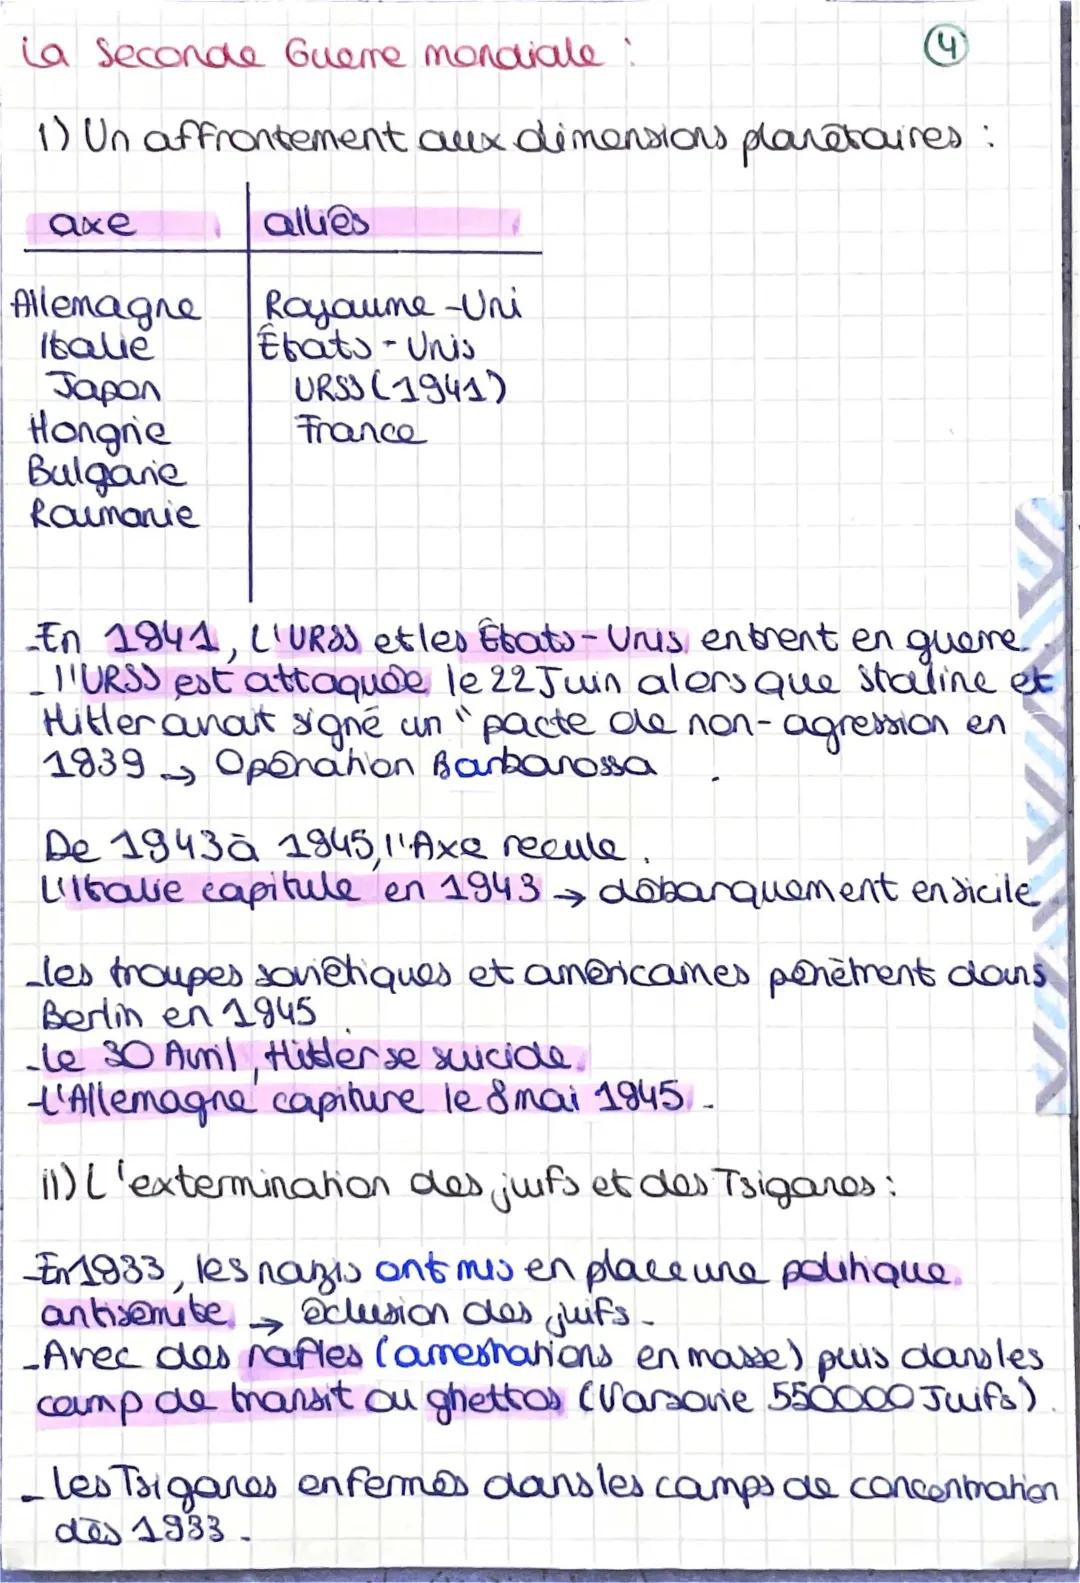 La Seconde Guerre mondiale :
4
I) Un affrontement aux dimensions planétaires :
axe
alliés
Allemagne
Italie
Japon
Hongrie
Bulgarie
Roumanie
Royaume-Uni
États-Unis
URSS (1941)
France
-En 1941, L'URSS et les États-Unis entrent en guerre.
- l'URSS est attaquée le 22 Juin alors que Staline et
Hitler avait signé un "pacte de non-agression en
1939 → Opération Barbarossa
De 1943 à 1945, l'Axe recule.
L'Italie capitule en 1943 → débarquement en Sicile
-les troupes soviétiques et américaines pénètrent dans
Berlin en 1945
-Le 30 Avril, Hitler se suicide.
-L'Allemagne capiture le 8 mai 1945.
II) L'extermination des juifs et des Tsiganes :
-En 1933, les nazis ont mis en place une politique
antisémite → éclusion des juifs.
-Avec des rafles (arrestations en masse) puis dans les
camp de transit ou ghettos (Varsovie 550000 Juifs).
- les Tsiganes enfermés dans les camps de concentration
dès 1933.